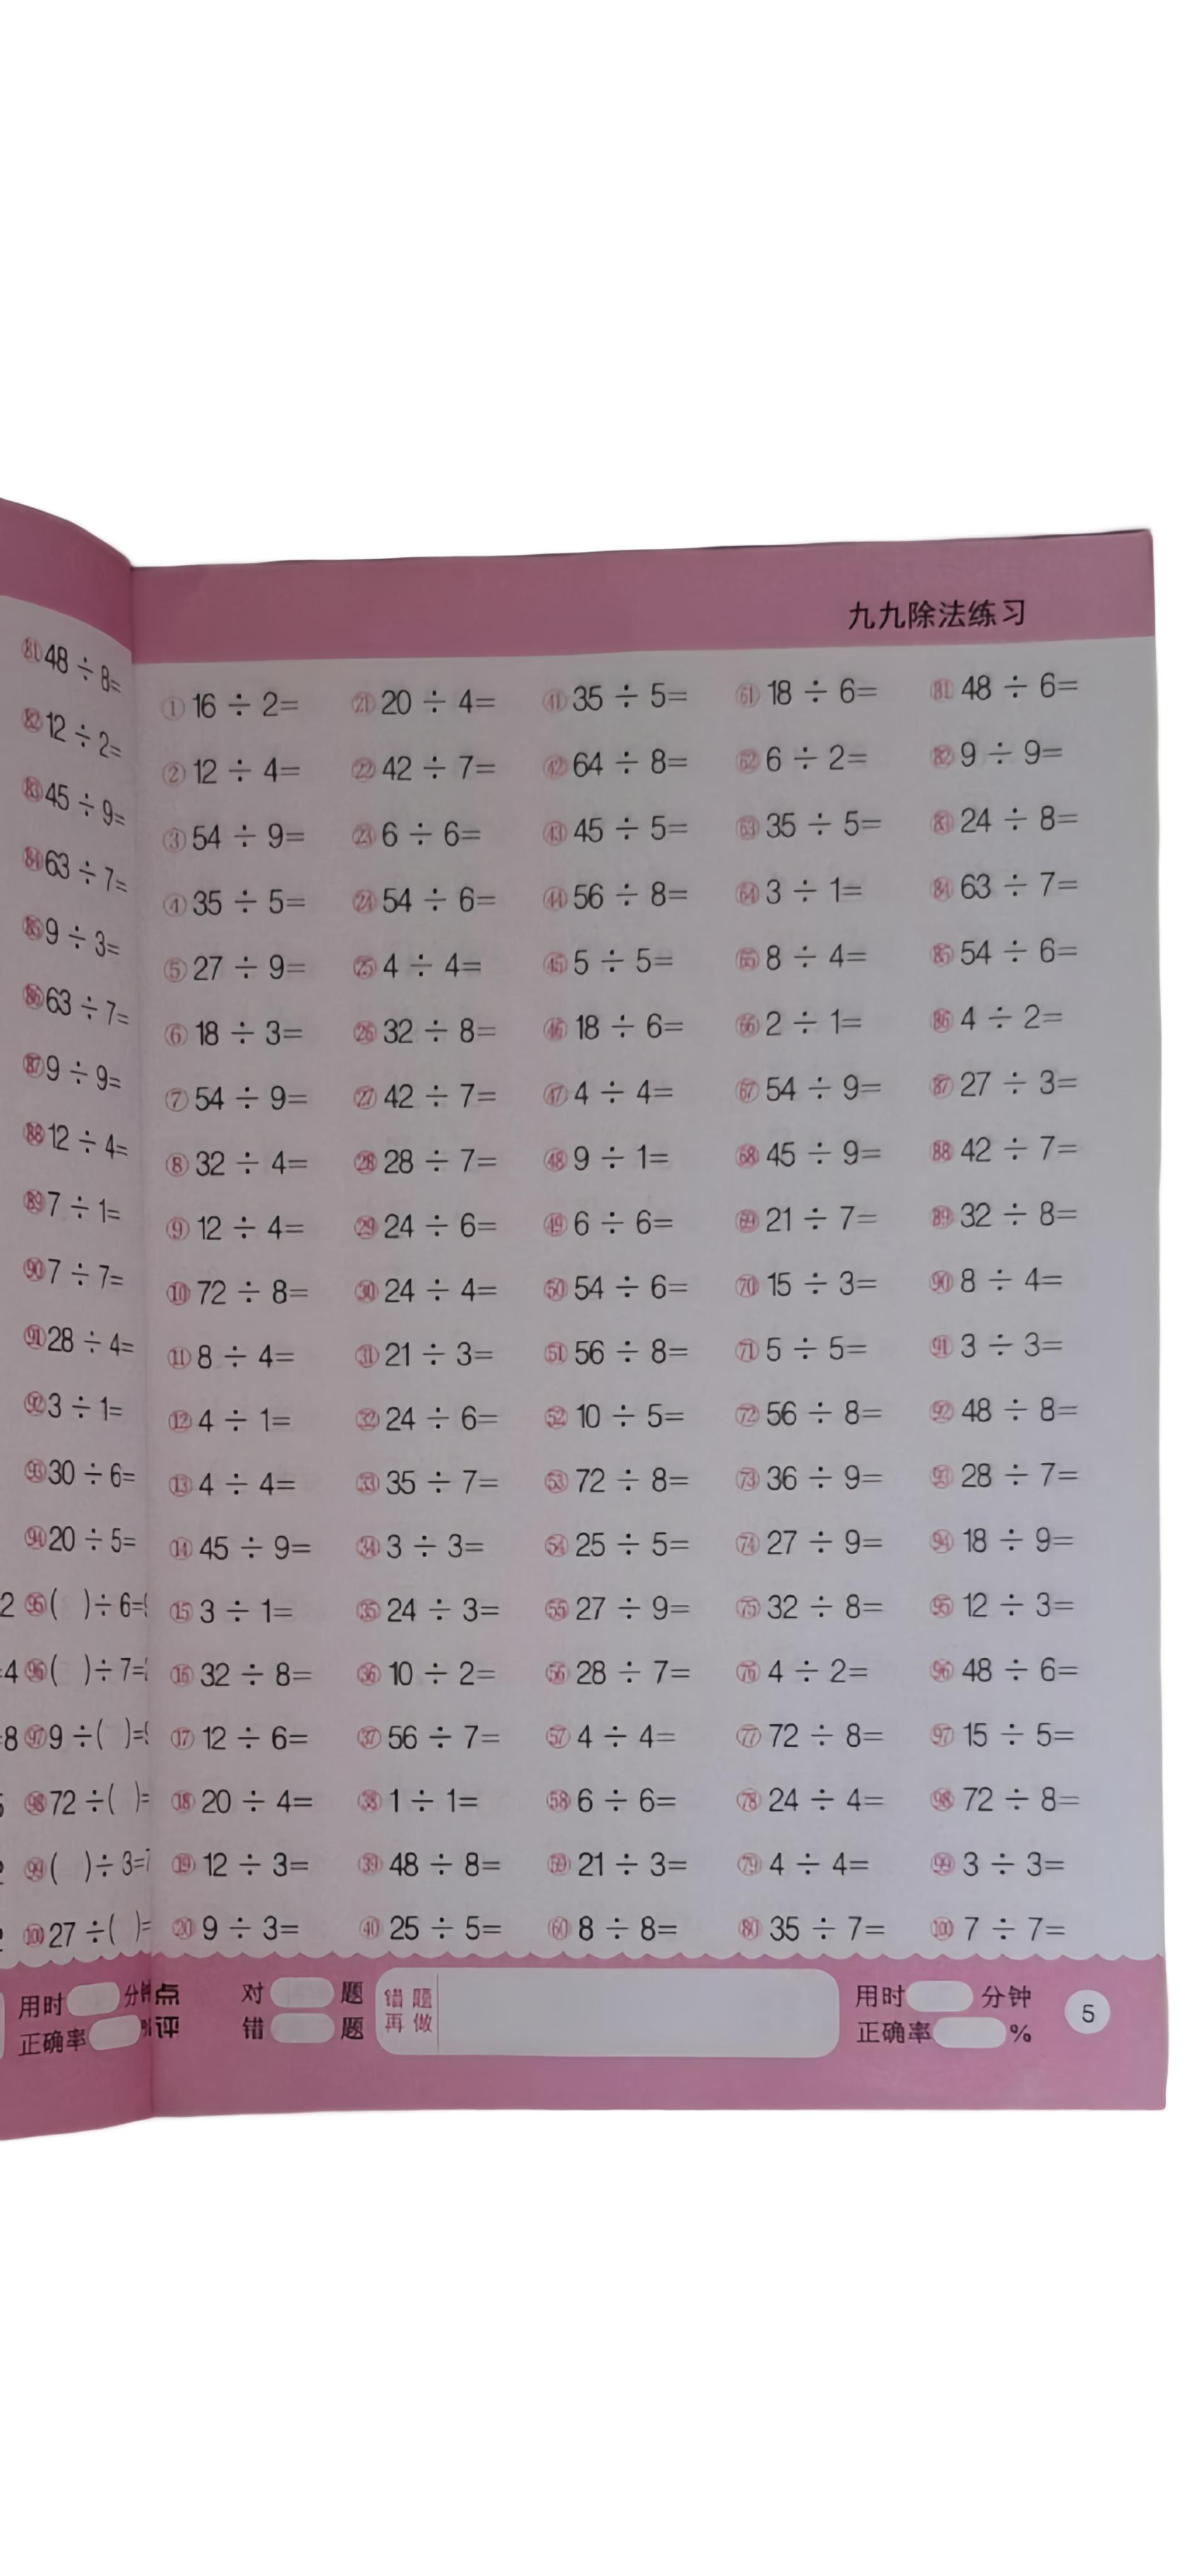 ㉛48 ÷ 8=
82 12 ÷ 2=
83 45 ÷ 9=
84 63 ÷ 7=
85 9 ÷ 3=
86 63 ÷ 7=
87 9 ÷ 9=
88 12 ÷ 4=
89 7 ÷ 1=
90 7 ÷ 7=
91 28 ÷ 4=
92 3 ÷ 1=
93 30 ÷ 6=
94 20 ÷ 5=
2 95 ( ) ÷ 6=
4 96 ( ) ÷ 7=
8 97 9 ÷ ( )=
98 72 ÷ ( )=
99 ( ) ÷ 3=7
100 27 ÷ ( )=
用时 分钟
正确率 %
九九除法练习
① 16 ÷ 2= ㉑ 20 ÷ 4= ㊶ 35 ÷ 5= 61 18 ÷ 6= 81 48 ÷ 6=
② 12 ÷ 4= ㉒ 42 ÷ 7= ㊷ 64 ÷ 8= 62 6 ÷ 2= 82 9 ÷ 9=
③ 54 ÷ 9= ㉓ 6 ÷ 6= ㊸ 45 ÷ 5= 63 35 ÷ 5= 83 24 ÷ 8=
④ 35 ÷ 5= ㉔ 54 ÷ 6= ㊹ 56 ÷ 8= 64 3 ÷ 1= 84 63 ÷ 7=
⑤ 27 ÷ 9= ㉕ 4 ÷ 4= ㊺ 5 ÷ 5= 65 8 ÷ 4= 85 54 ÷ 6=
⑥ 18 ÷ 3= ㉖ 32 ÷ 8= ㊻ 18 ÷ 6= 66 2 ÷ 1= 86 4 ÷ 2=
⑦ 54 ÷ 9= ㉗ 42 ÷ 7= ㊼ 4 ÷ 4= 67 54 ÷ 9= 87 27 ÷ 3=
⑧ 32 ÷ 4= ㉘ 28 ÷ 7= ㊽ 9 ÷ 1= 68 45 ÷ 9= 88 42 ÷ 7=
⑨ 12 ÷ 4= ㉙ 24 ÷ 6= ㊾ 6 ÷ 6= 69 21 ÷ 7= 89 32 ÷ 8=
⑩ 72 ÷ 8= ㉚ 24 ÷ 4= ㊿ 54 ÷ 6= 70 15 ÷ 3= 90 8 ÷ 4=
⑪ 8 ÷ 4= ㉛ 21 ÷ 3= 51 56 ÷ 8= 71 5 ÷ 5= 91 3 ÷ 3=
⑫ 4 ÷ 1= ㉜ 24 ÷ 6= 52 10 ÷ 5= 72 56 ÷ 8= 92 48 ÷ 8=
⑬ 4 ÷ 4= ㉝ 35 ÷ 7= 53 72 ÷ 8= 73 36 ÷ 9= 93 28 ÷ 7=
⑭ 45 ÷ 9= ㉞ 3 ÷ 3= 54 25 ÷ 5= 74 27 ÷ 9= 94 18 ÷ 9=
⑮ 3 ÷ 1= ㉟ 24 ÷ 3= 55 27 ÷ 9= 75 32 ÷ 8= 95 12 ÷ 3=
⑯ 32 ÷ 8= ㊱ 10 ÷ 2= 56 28 ÷ 7= 76 4 ÷ 2= 96 48 ÷ 6=
⑰ 12 ÷ 6= ㊲ 56 ÷ 7= 57 4 ÷ 4= 77 72 ÷ 8= 97 15 ÷ 5=
⑱ 20 ÷ 4= ㊳ 1 ÷ 1= 58 6 ÷ 6= 78 24 ÷ 4= 98 72 ÷ 8=
⑲ 12 ÷ 3= ㊴ 48 ÷ 8= 59 21 ÷ 3= 79 4 ÷ 4= 99 3 ÷ 3=
⑳ 9 ÷ 3= ㊵ 25 ÷ 5= 60 8 ÷ 8= 80 35 ÷ 7= 100 7 ÷ 7=
点评 对 题 错题再做 用时 分钟 5
错 题 正确率 %